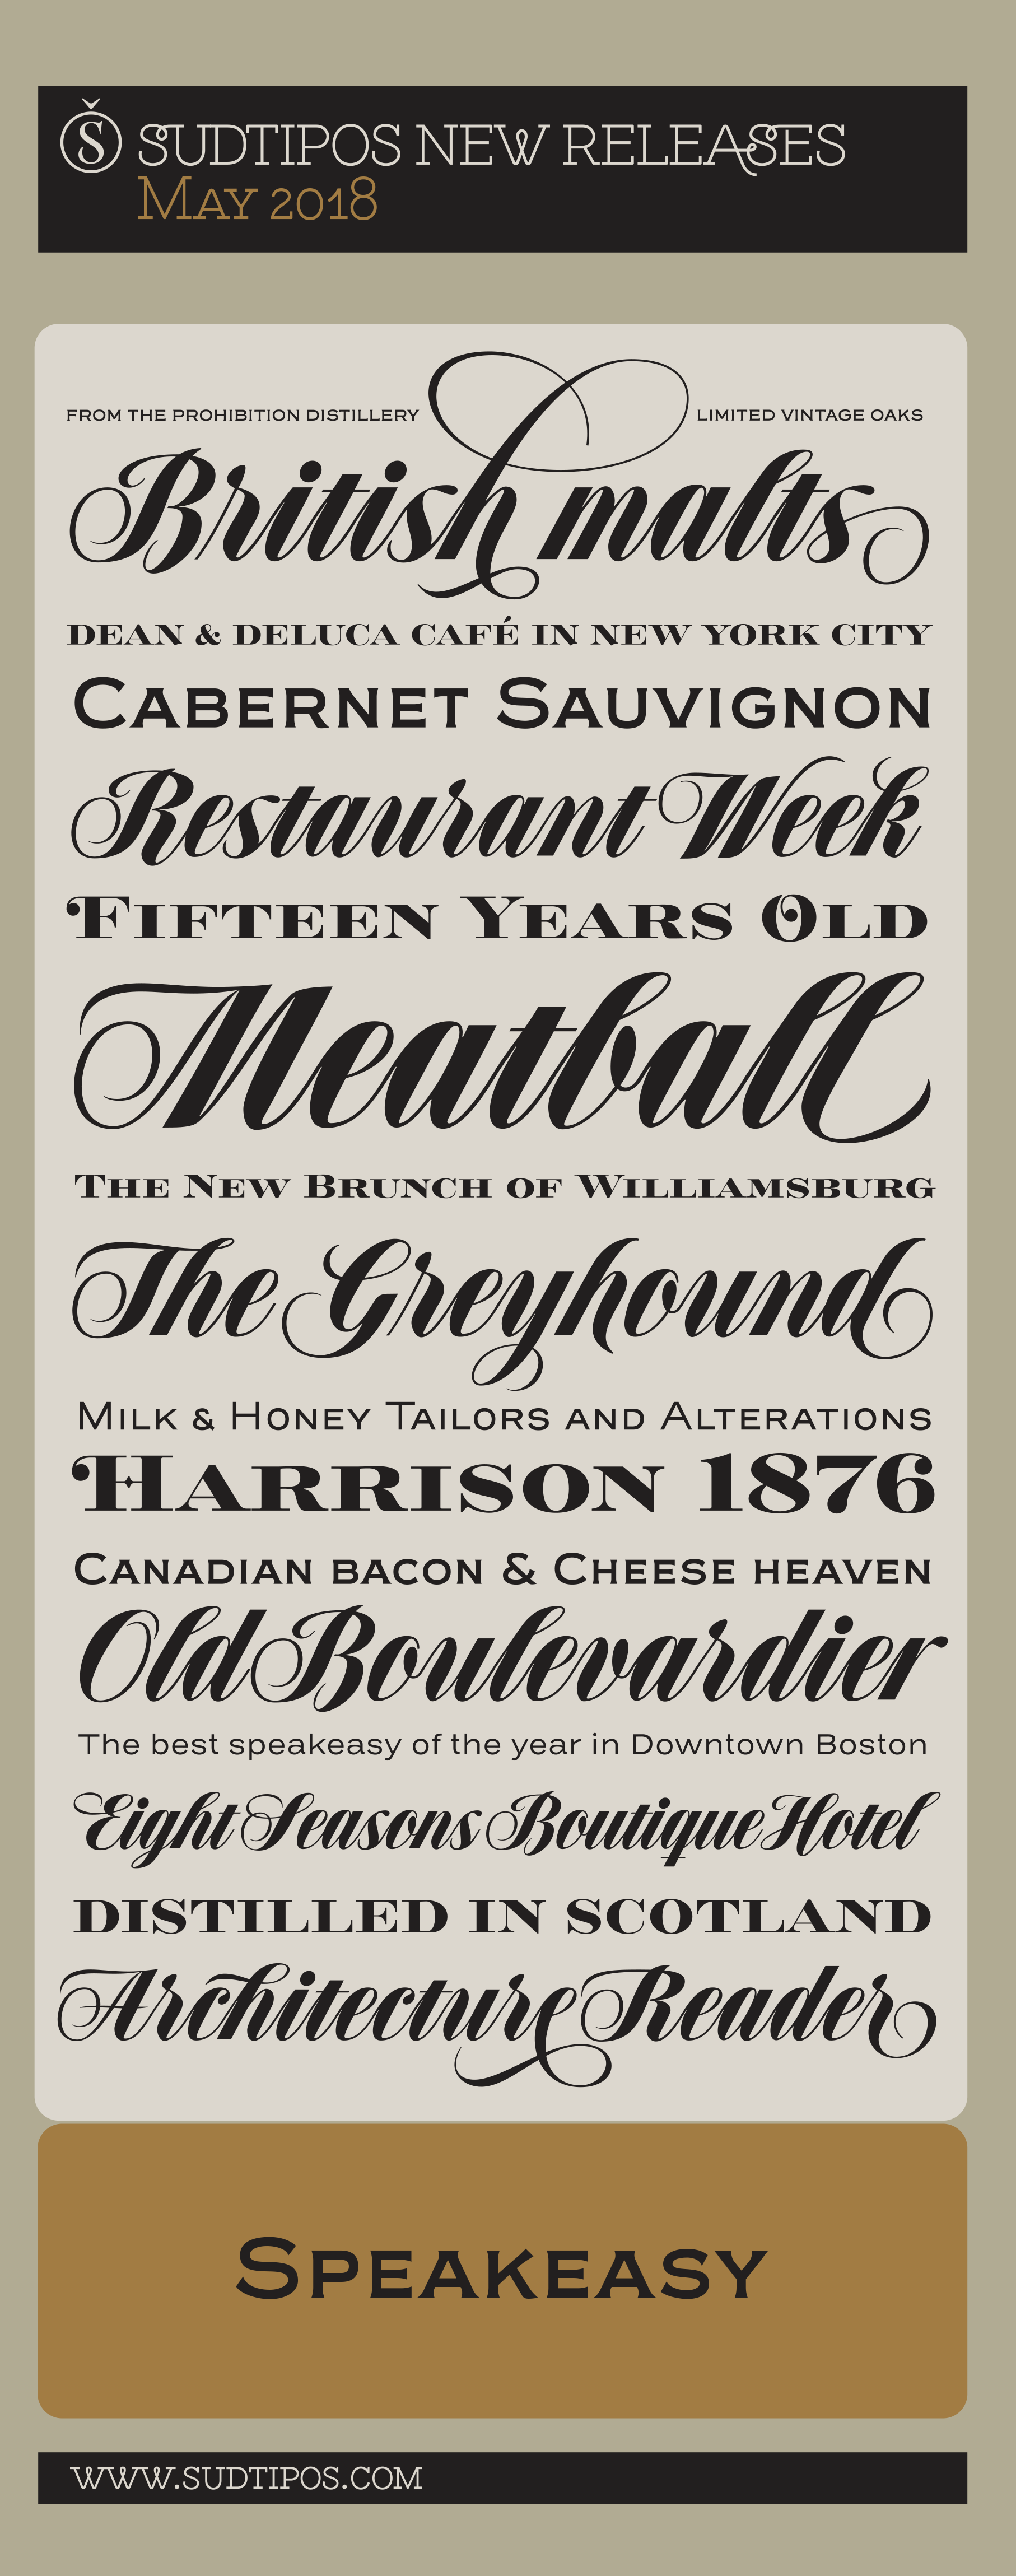 Š SUDTIPOS NEW RELEASES
MAY 2018
FROM THE PROHIBITION DISTILLERY LIMITED VINTAGE OAKS
British malts
DEAN & DELUCA CAFÉ IN NEW YORK CITY
CABERNET SAUVIGNON
Restaurant Week
FIFTEEN YEARS OLD
Meatball
THE NEW BRUNCH OF WILLIAMSBURG
The Greyhound
MILK & HONEY TAILORS AND ALTERATIONS
HARRISON 1876
CANADIAN BACON & CHEESE HEAVEN
Old Boulevardier
The best speakeasy of the year in Downtown Boston
Eight Seasons Boutique Hotel
DISTILLED IN SCOTLAND
Architecture Reader
SPEAKEASY
WWW.SUDTIPOS.COM